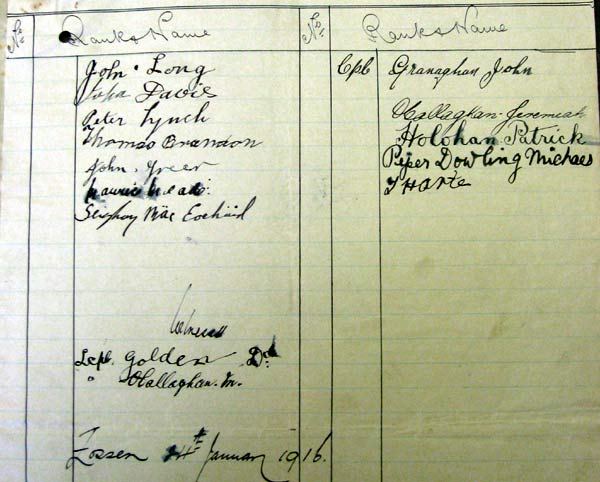 No. Rank & Name
John Long
John Davis
Peter Lynch
Thomas Brandon
John Greer
Maurice Meade
Mac Eochaid
Witnesses
Lcpl. Golden Dd
" O'Callaghan. M.
Zossen 14th January 1916.
No. Rank & Name
Cpl Granaghan John
O'Callaghan Jeremiah
Holohan Patrick
Piper Dowling Michael
T Harte